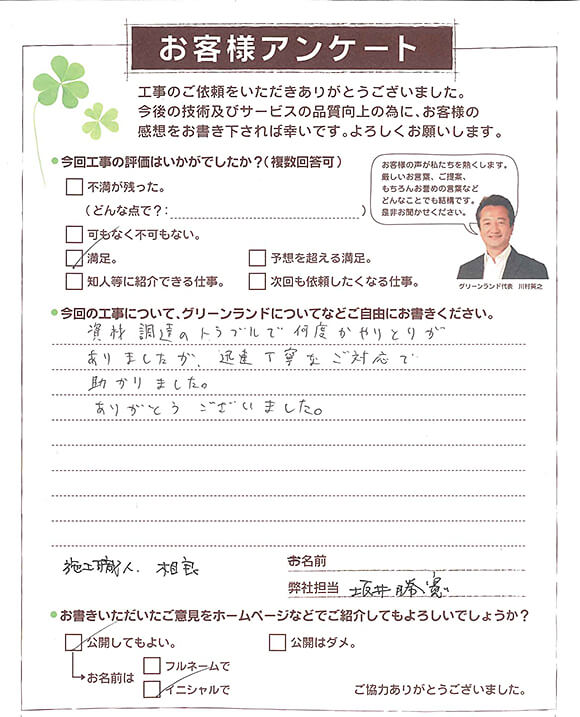 お客様アンケート
工事のご依頼をいただきありがとうございました。
今後の技術及びサービスの品質向上の為に、お客様の
感想をお書き下されば幸いです。よろしくお願いします。
今回工事の評価はいかがでしたか？(複数回答可)
不満が残った。
(どんな点で？: )
可もなく不可もない。
満足。
予想を超える満足。
知人等に紹介できる仕事。
次回も依頼したくなる仕事。
お客様の声が私たちを熱くします。
厳しいお言葉、ご提案、
もちろんお誉めの言葉など
どんなことでも結構です。
是非お聞かせください。
グリーンランド代表 川村英之
今回の工事について、グリーンランドについてなどご自由にお書きください。
資材調達のトラブルで何度かやりとりが
ありましたが、迅速丁寧なご対応で
助かりました。
ありがとうございました。
施工職人. 相良
お名前
弊社担当 坂井勝寛
お書きいただいたご意見をホームページなどでご紹介してもよろしいでしょうか？
公開してもよい。
公開はダメ。
お名前は
フルネームで
イニシャルで
ご協力ありがとうございました。